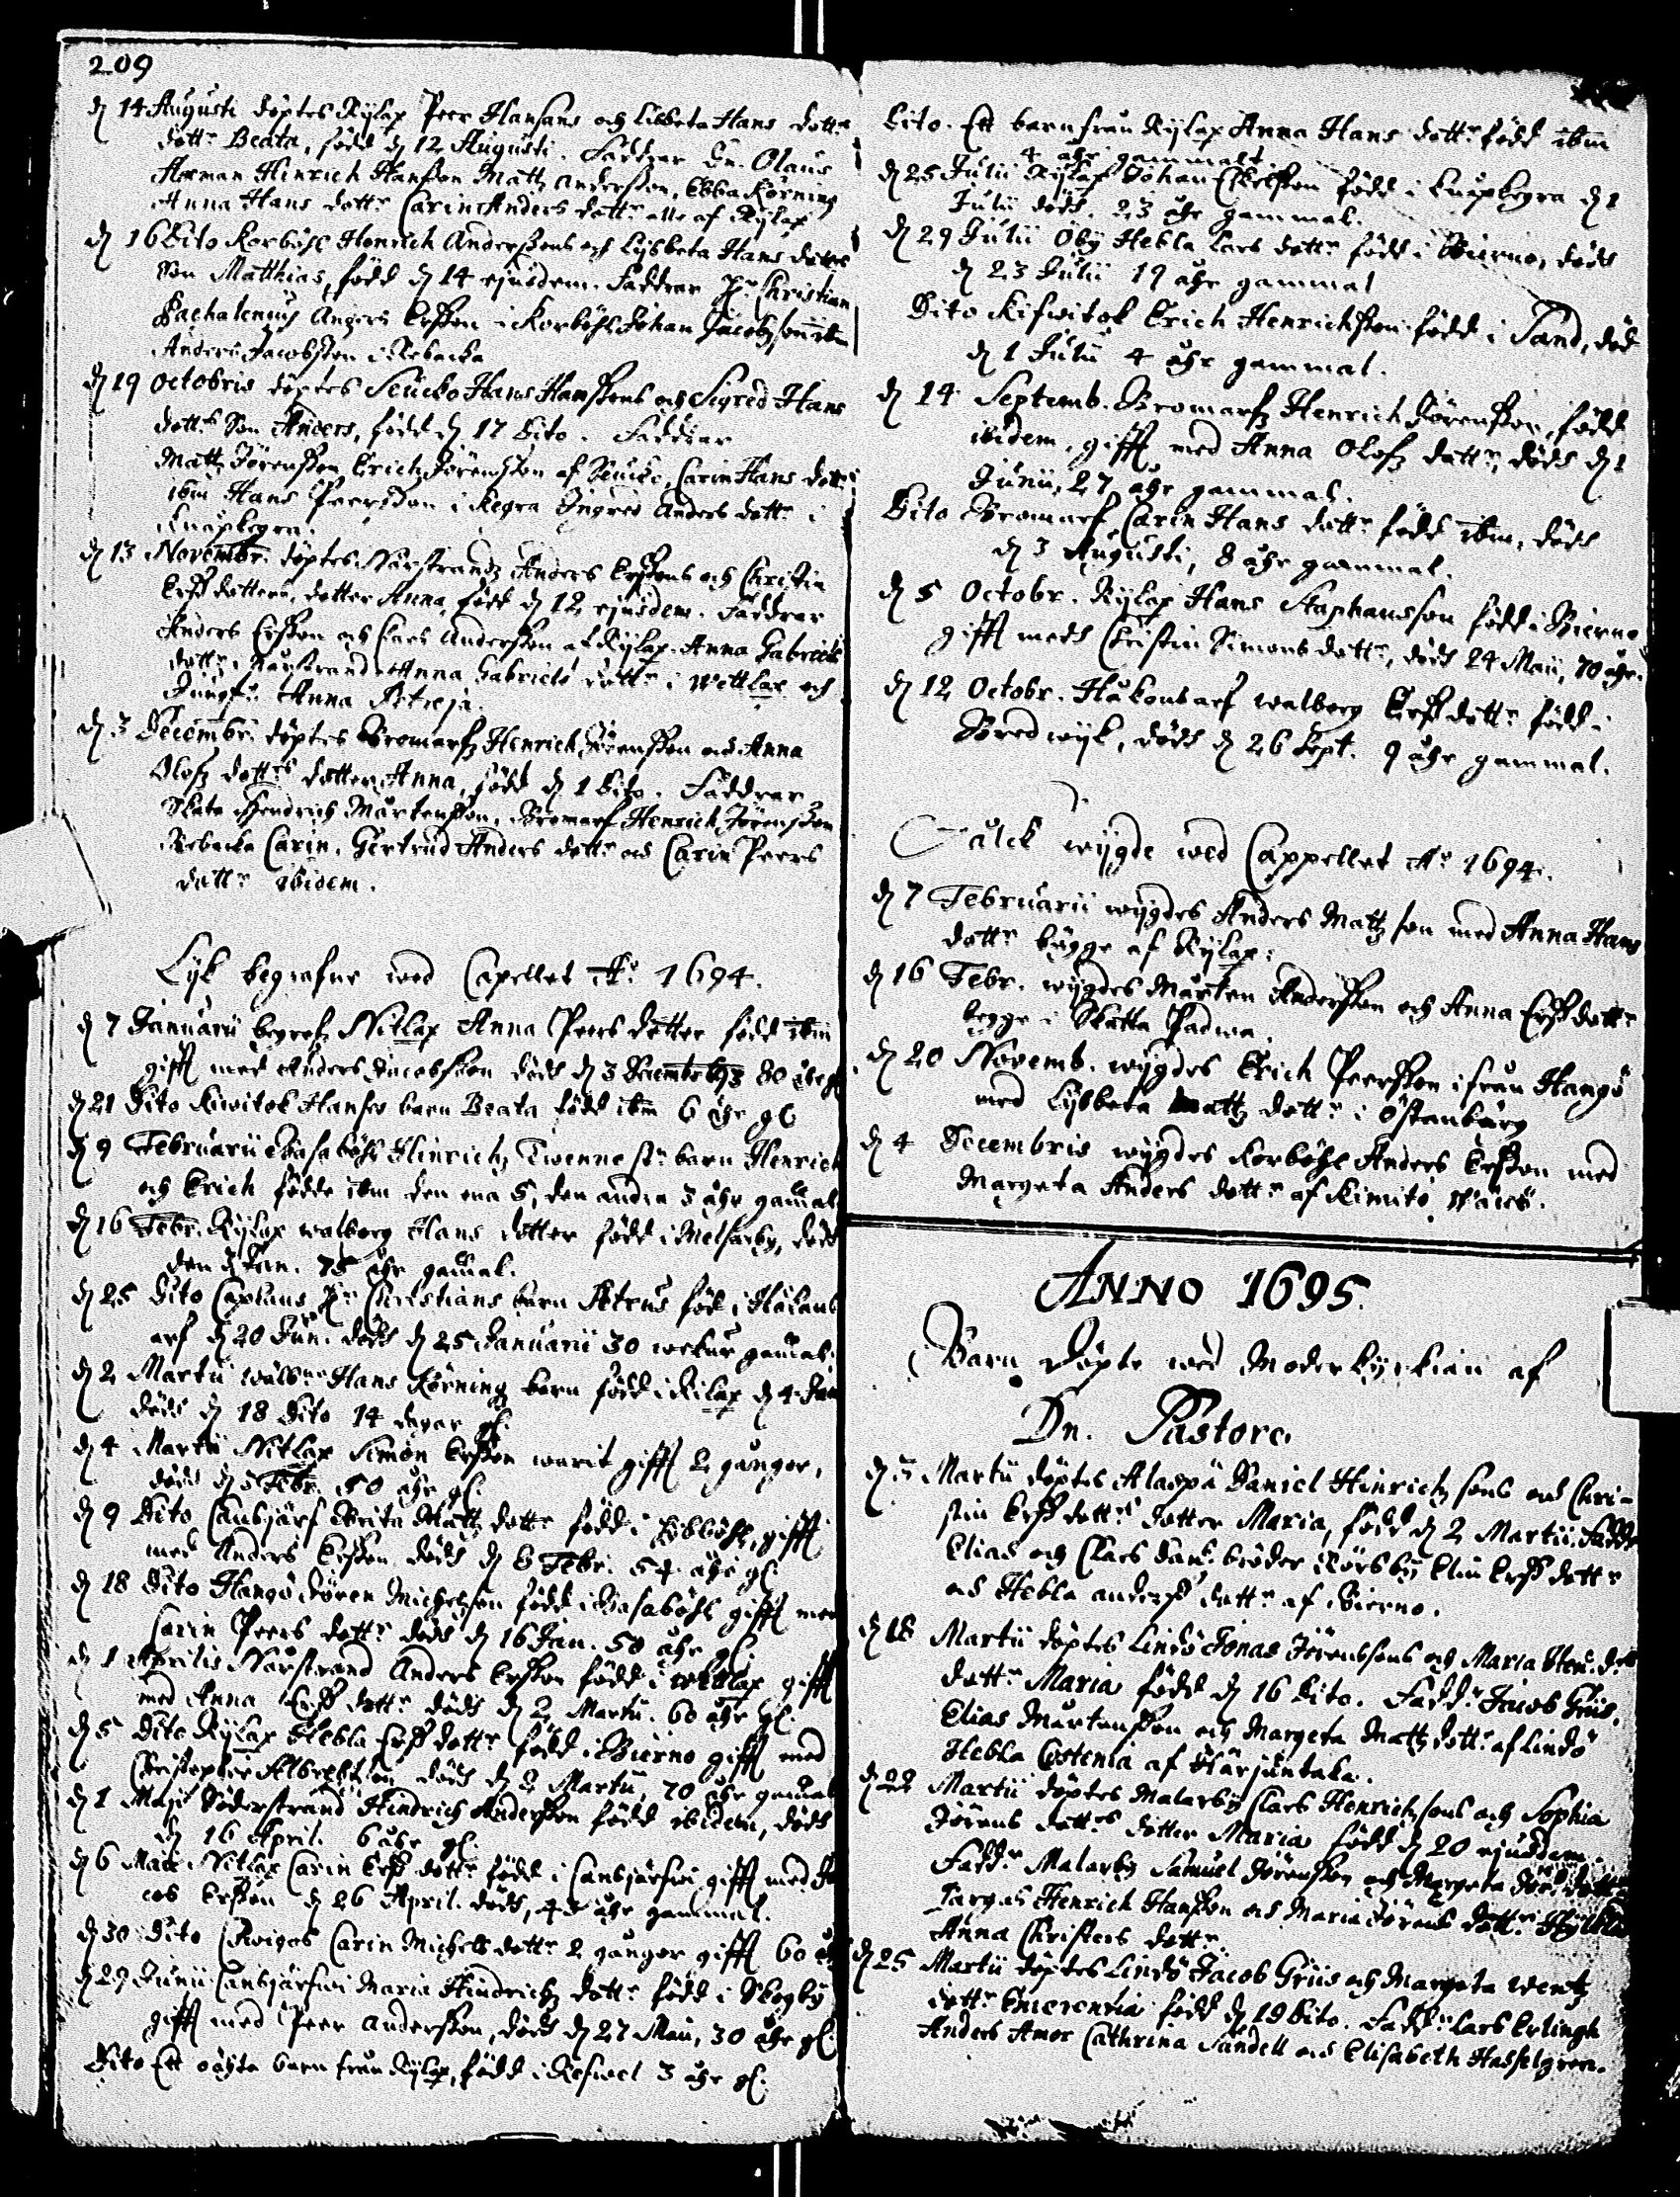 209
d 14 Augusti döptes Rylax Peer Hansans och Lissbeta Hans dottrs
dottr Beata, född d 12 Augusti. Faddrar Dn. Olaus
Herman Hinrich Hansson Mattz Andersson, Ebba Körning
Anna Hans dottr Carin Anders dottr alle af Rylax
d 16 Dito Korböhle Henrich Anderssons och Lysbeta Hans dotters
Son Matthias, född d 14 ejusdem. Faddrar Hr Christian
Anders Ersson i Korböhle Johan Jacobsson ibm
Anders Jacobsson i Rebacka
d 19 octobris döptes Scucko Hans Hanssons och Sigred Hans
dottrs Son Anders, född d 17 Dito. Faddrar
Mattz Jörensson, Erich Jörensson af Scucko, Carin Hans dottr
ibm Hans Peersson i Regra Ingred Anders dottr i
Knapsegra.
d 13 Novembr. döptes Närstrandz Anders Erssons och Christin
Ersdotters, dotter Anna, född d 12 ejusdem. Faddrar
Anders Ersson och Claes Andersson af Rylax. Anna Gabriels
dottr. Närstrand Anna Gabriels dottr i Wettlax och
Jungfr Anna Petreja.
d 3 Decembr. döptes Bromarf Henrich Sörensson och Anna
Olofz dottrs dotter Anna, född d 1 Dito. Faddrar
Skata Hendrich Mårtensson, Bromarf Henrich Jörensson
Rebacka Carin, Gertrud Anders dottr och Carin Peers
dottr ibidem.
Lyk begrafne wed Capellet Ao 1694.
d 7 Januarii begrofz Nitlax Anna Peers dotter född ibm
gifft med Anders Jacobsson död d 3 Decembr 80 åhr gl
d 21 Dito Kiwitok Hanses barn Beata född ibm 6 åhr gl
d 9 Februarii Basaböhle Hinrichz Twenne st. barn Henrich
och Erich födde ibm den ena 5, den andra 3 åhr gamal
d 16 Febr. Rylax walborg Hans dotter född i Melsarby, död
den Jan. 75 åhr gamal.
d 25 Dito Caplans Hr Christians barn Petrus född i Håkans
arf d 20 Jun. död d 25 Januarii 30 wekur gamal.
d 2 Martii Hans Körning barn född i Rilax d 4 Jan
död d 18 Dito 14 dagar gl.
d 4 Martii Nitlax Simon Ersson warit gifft 2 gånger,
död d 5 Febr. 50 åhr gl.
d 9 Dito Cansjärf Brita Mattz dottr född i gifft
med Anders Ersson död d 6 Febr. 54 åhr gl.
d 18 Dito Hangö Sören Michelson född i Basaböhle gifft med
Carin Peers dottr död d 16 Jan. 50 åhr gl
d 1 Aprilis Närstrand Anders Ersson född i Wettlax gifft
med Anna Ers dottr död d 2 Martii. 60 åhr gl.
d 5 Dito Rylax Hebla Ers dottr född i Bierno gifft med
Christopher Albrehtson död d 2 Martii, 70 åhr gamal
d 1 Maji Söderstrand Hindrich Andersson född ibidem, död
d 16 April. 6 åhr gl.
d 6 Maii Nitlax Carin Ers dottr född i Cansjärfwi gifft med Ja
cob Ersson d 26 April. död, 45 åhr gammal.
d 30 Dito Carin Michels dottr 2 gånger gifft 60 åhr
d 29 Junii Cansjärfwi Maria Hindrichz dottr född i Skogby
gifft med Peer Andersson, död d 27 Maii, 30 åhr gl.
Dito Ett oächta barn från Rylax, född i Refwel 3 åhr gl.
Dito. Ett barn från Rylax Anna Hans dottr född ibm
4 åhr gammalt.
d 25 Julii Rylax Johan född i Knapsegra d 1
Julii död. 23 åhr gammal.
d 29 Julii Öby Hebla Lars dottr född i Bierno, död
d 23 Julii 19 åhr gammal
Dito Kifwitok Erich Henrichsson född i Sand, död
d 1 Julii 4 åhr gammal.
d 14 Septemb. Bromarf Henrich Sörensson, född
ibidem, gifft med Anna Olofz dottr, död d 1
Junii, 27 åhr gammal.
Dito Bromarf Carin Hans dottr född ibm, död
d 3 Augusti, 8 åhr gammal.
d 5 Octobr. Rylax Hans Staphansson född i Bierno
gifft med Christin Simons dottr, död 24 Maii, 70 åhr.
d 12 Octobr. Håkansarf walborg Ers dottr född i
Bredwyk, död d 26 Sept. 9 åhr gammal.
Fålck wygde wed Cappellet Ao 1694.
d 7 Februarii wygdes Anders Mattzson med Anna Hans
dottr bägge af Rylax.
d 16 Febr. wygdes Mårten Andersson och Anna Ers dottr
begge i Skatta Padwa.
d 20 Novemb. wygdes Erich Peersson ifrån Hangö
med Lysbeta Mattz dottr i Östanbärg
d 4 Decembris wygdes Korböhle Anders Ersson med
Margeta Anders dottr af Kimito
ANNO 1695.
Barn döpte wed Moderkyrkian af
Dn. Pastore.
d 5 Martii döptes Alaspä Daniel Hinrichsons och Chri-
stin Ers dottrs dotter Maria, född d 2 Martii. Faddr
Elias och Claes Dan. bröder Elin Ers dottr
och Hebla Anders dottr af Bierno.
d 18 Martii döptes Lindö Jonas Jörenssons och Maria
dottr Maria född d 16 Dito. Faddr Jacob Griis,
Elias Mårtensson och Margeta Mattz dottr af Lindö
Hebla Costenia af Harjantaka.
d 22 Martii döptes Malarby Clars Henrichsons och Sophia
Jörens dottrs dotter Maria född d 20 ejusdem.
Faddr Malarby Samuel Jörensson och Margeta dottr
Targas Henrich Hansson och Maria Jörens dottr.
Anna Christers dottr.
d 25 Martii döptes Lindö Jacob Griis och Margeta Wentz
dottr Emerentia född d 19 Dito. Faddr Lars Erlingh
Anders Amor Cathrina Sandell och Elisabeth Hasselgren.